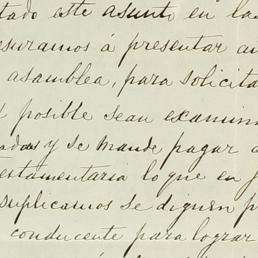 tado este asunto en la
esuramos á presentar an
asamblea, para solicita
posible sean examin
adas y se mande pagar a
estamentaria lo que en j
suplicamos se dignen p
conducente para lograr